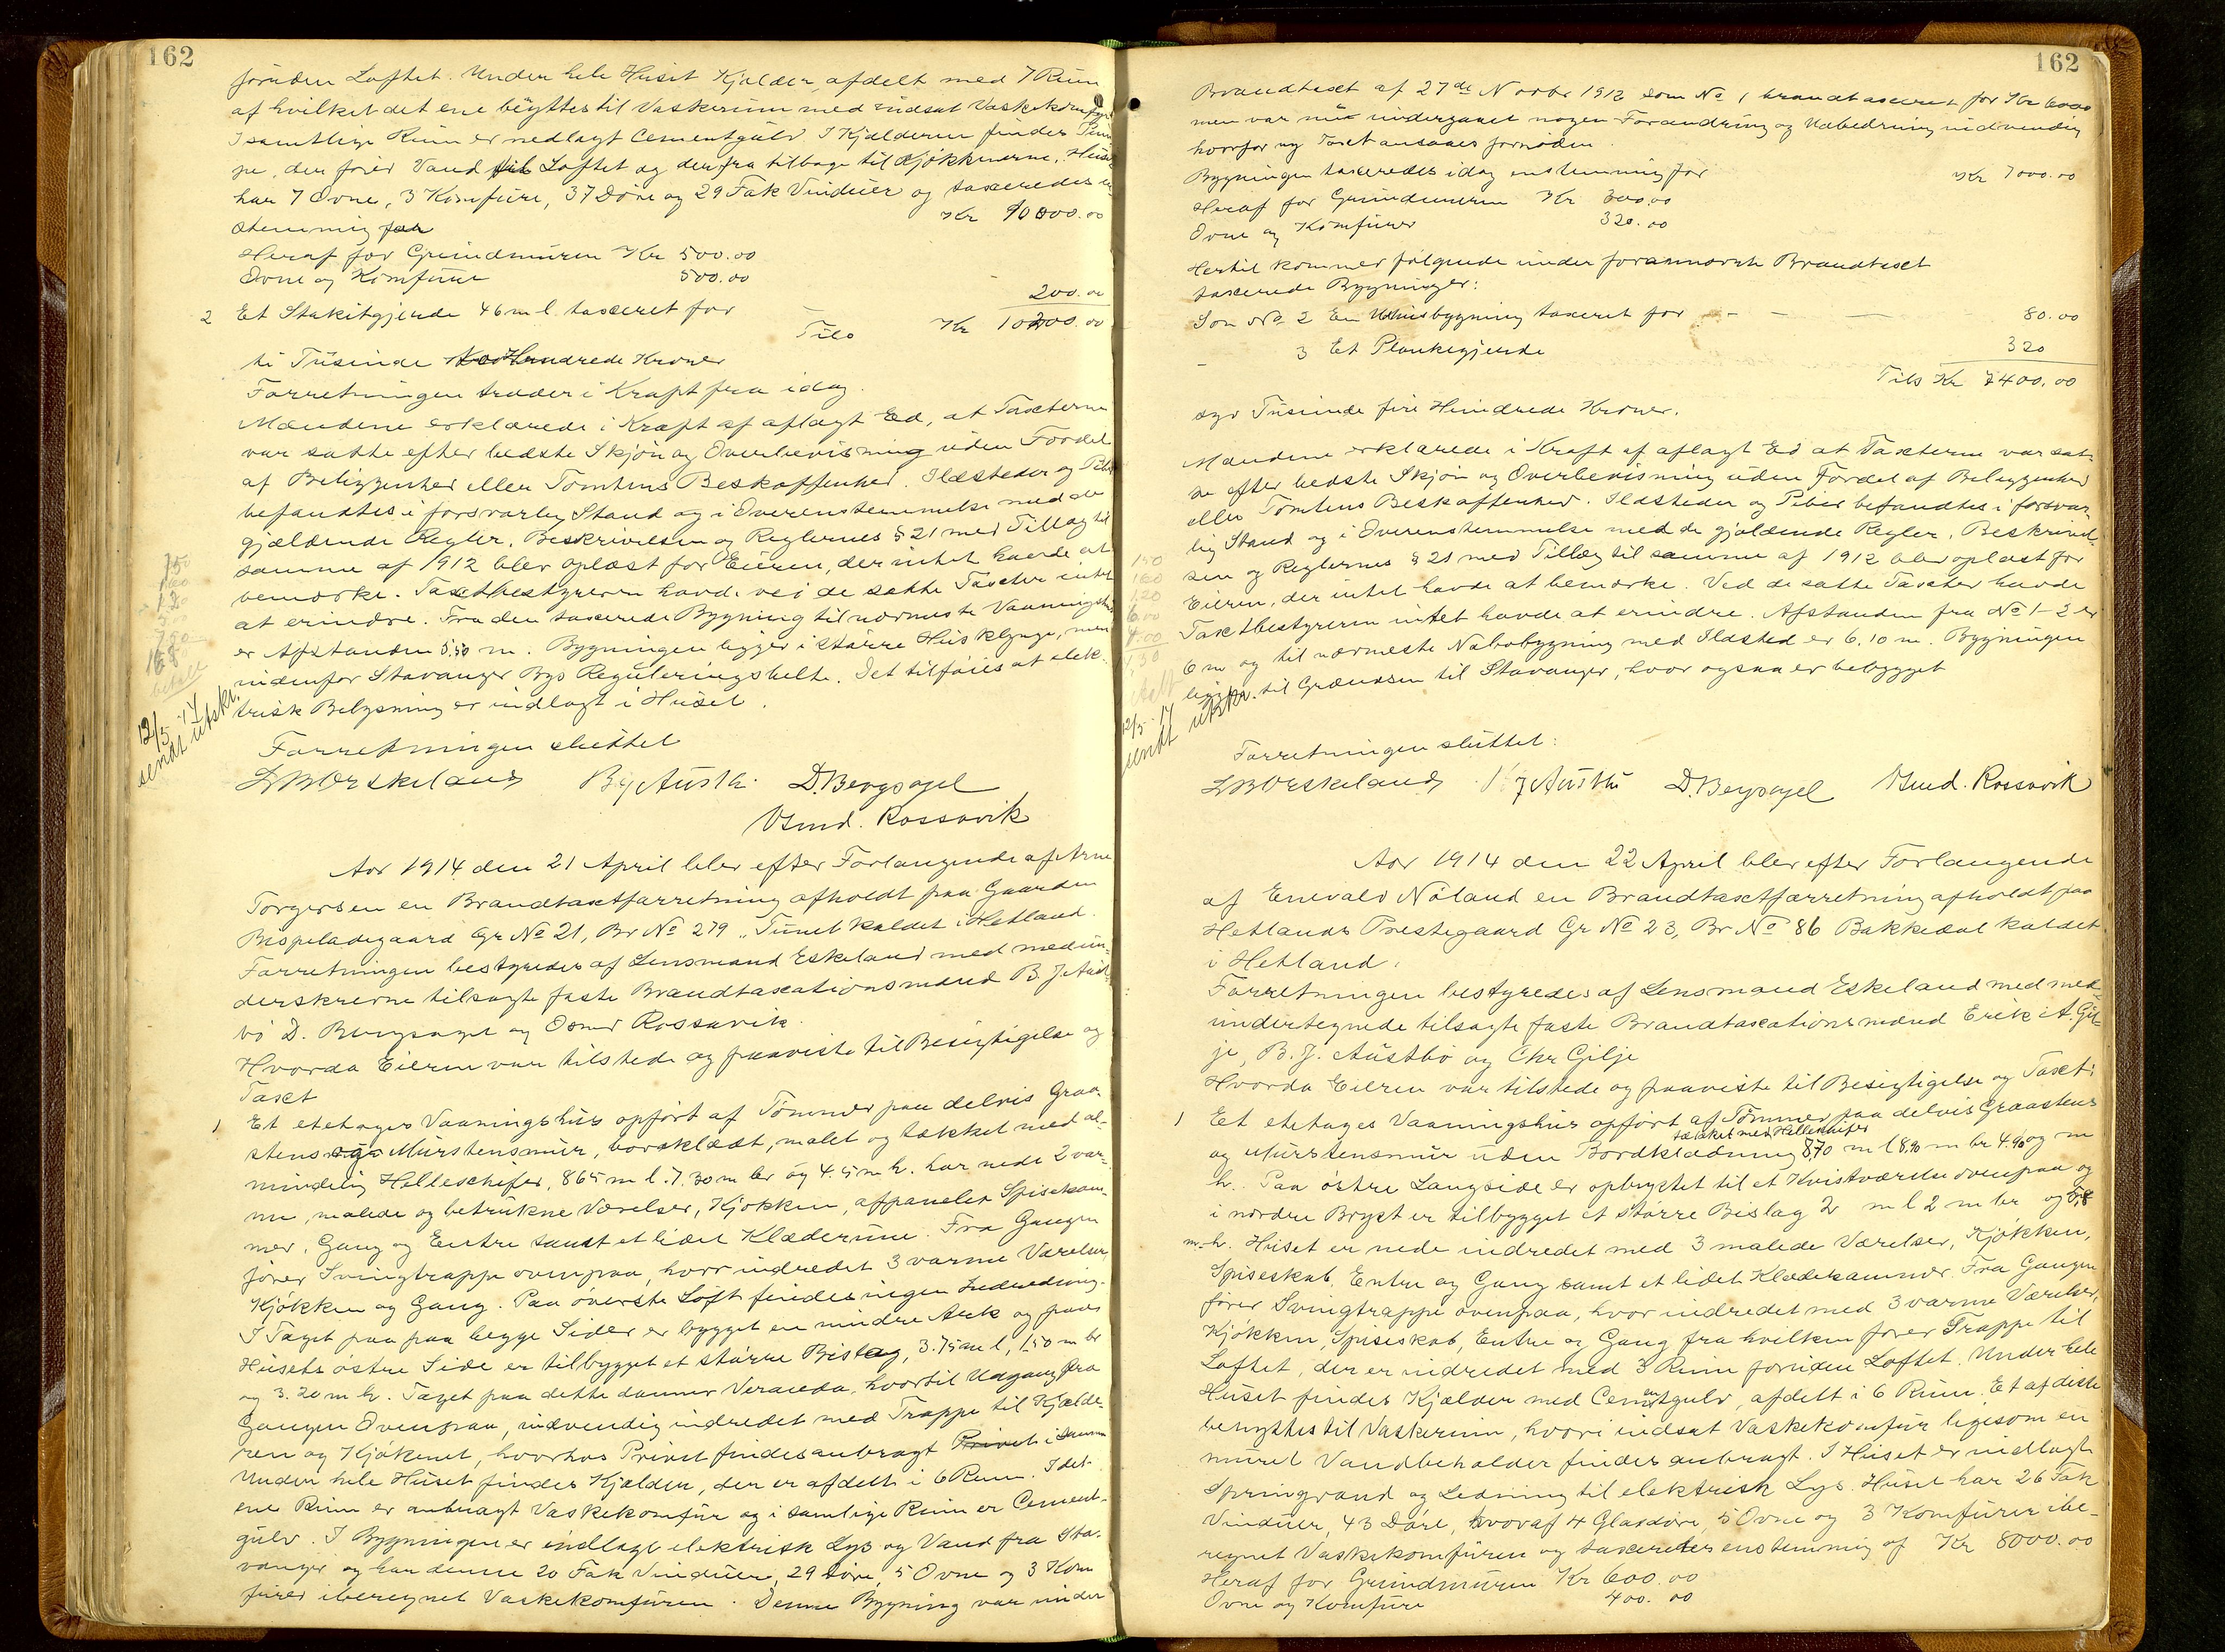 162
foruden Loftet. Under hele Huset Kjælder, afdelt med 7 Rum
af hvilket det ene benyttes til Vaskerum med indsat Vaskekomfyr
I samtlige Rum er nedlagt Cementgulv I Kjælderen findes Pum
pe, der fører Vand til Loftet og derfra tilbage til Kjøkknerne. Huset
har 7 Ovne, 3 Komfurer, 37 Døre og 29 Fak Vinduer og taxeredes en
stemmig for Kr 10000.00
Heraf for Grundmuren Kr 500.00
Ovne og Komfure 500.00
2 Et Stakitgjerde 46 m l taxeret for 200.00
Tils Kr 10200.00
ti Tusinde to Hundrede Kroner
Forretningen træder i Kraft fra idag.
Mændene erklærede i Kraft af aflagt Ed, at Taxterne
var satte efter bedste Skjøn og Overbevisning uden Fordel
af Beliggenhed eller Tomtens Beskaffenhed. Ildsteder og Piber
befandtes i forsvarlig Stand og i Overensstemmelse med de
gjældende Regler. Beskrivelsen og Reglernes § 21 med Tillæg til
samme af 1912 blev oplæst for Eieren, der intet havde at
bemærke. Taxtbestyreren havde ved de satte Taxter intet
at erindre. Fra den taxerede Bygning til nærmeste Vaaningshus
er Afstanden 5.50 m. Bygningen ligger i større Husklynge, men
udenfor Stavanger Bys Reguleringsbelte. Det tilføies at elek-
trisk Belysning er indlagt i Huset.
12/5-14
sendt utskr.
Forretningen sluttet
D. Bergsagel
Osmd. Rossavik
Aar 1914 den 21 April blev efter Forlangende af Arne
Torgersen en Brandtaxtforretning afholdt paa Gaarden
Bispeladegaard Gr No 21, Br No 279 „Tunet kaldet i Hetland.
Forretningen bestyredes af Lensmand Eskeland med medun-
derskrevne tilsagte faste Brandtaxationsmænd B. J. Aust-
bø D. Bergsagel og Osmd Rossavik.
Hvorda Eieren var tilstede og paaviste til Besigtigelse og
Taxt
1 Et etetages Vaaningshus opført af Tømmer paa delvis Graa-
stens og Murstensmur, bordklædt, malet og tækket med al-
mindelig Helleschifer, 865 m l. 7.30 m br og 4.5 m h. har nede 2 var-
me, malede og betrukne Værelser, Kjøkken, afpanelet Spisekam-
mer, Gang og Entre samt et lidet Klæderum. Fra Gangen
fører Svingtrappe ovenpaa, hvor indredet 3 varme Værelser,
Kjøkken og Gang. Paa øverste Loft findes ingen Indredning.
I Taget paa paa begge Sider er bygget en mindre Ark og paa
Husets østre Side er tilbygget et større Bislag, 3.75 m l, 1.50 m br
og 3.20 m h. Taget paa dette danner Veranda, hvortil Udgang fra
Gangen Ovenpaa, indvendig indredet med Trappe til Kjælde-
ren og Kjøkkenet, hvorhos Privet findes anbragt Privet i samme
Under hele Huset findes Kjælder, der er afdelt i 6 Rum. I det
ene Rum er anbragt Vaskekomfur og i samlige Rum er Cement-
gulv. I Bygningen er indlagt elektrisk Lys og Vand fra Sta-
vanger og har denne 20 Fak Vinduer, 29 Døre, 5 Ovne og 3 Kom
furer iberegnet Vaskekomfuren. Denne Bygning var under
162
Brandtaxt af 27de Novbr 1912 som No 1 brandtaxeret for Kr 6000
men var nu undergaaet nogen Forandring og Udbedring indvendig
hvorfor ny Taxt ansaaes fornøden.
Bygningen taxeredes idag enstemmig for Kr 7000.00
Heraf for Grundmuren Kr 300.00
Ovne og Komfurer 320.00
Hertil kommer følgende under forannævnte Brandtaxt
taxerede Bygninger:
Som No 2 En Udhusbygning taxeret for 80.00
3 Et Plankegjerde 320
Tils Kr 7400.00
syv Tusinde fire Hundrede Kroner.
Mændene erklærede i Kraft af aflagt Ed at Taxterne var sat-
te efter bedste Skjøn og Overbevisning uden Fordel af Beliggenhed
eller Tomtens Beskaffenhed. Ildsteder og Piber befandtes i forsvar-
lig Stand og i Overenstemmelse med de gjældende Regler. Beskrivel-
sen og Reglernes § 21 med Tillæg til samme af 1912 blev oplæst for
Eieren, der intet havde at bemærke. Ved de satte Taxter havde
Taxtbestyreren intet havde at erindre. Afstanden fra No 1-2 er
6 m og til nærmeste Nabobygning med Ildsted er 6.10 m. Bygningen
ligger til Grændsen til Stavanger, hvor ogsaa er bebygget
12/5-14
sendt utskr.
Forretningen sluttet:
D. Bergsagel Osmd. Rossavik
Aar 1914 den 22 April blev efter Forlangende
af Enevald Nøland en Brandtaxtforretning afholdt paa
Hetlands Prestegaard Gr No 23, Br No 86 Bakkedal kaldet
i Hetland.
Forretningen bestyredes af Lensmand Eskeland med med-
undertegnede tilsagte faste Brandtaxationsmænd Erik A. Gil-
je, B. J. Austbø og Chr Gilje
Hvorda Eieren var tilstede og paaviste til Besigtigelse og Taxt:
1 Et etetages Vaaningshus opført af Tømmer paa delvis Graastens
og Murstensmur uden Bordklædning tækket med Helleskifer 8,70 m l 8,90 m br 4.90 og m
h. Paa østre Langside er opbygget til et Kvistværelse ovenpaa og
i nordre Bryst er tilbygget et større Bislag 2 m l 2 m br og
m. h. Huset er nede indredet med 3 malede Værelser, Kjøkken,
Spiseskab, Entre og Gang samt et lidet Klædekammer. Fra Gangen
fører Svingtrappe ovenpaa, hvor indredet med 3 varme Værelser,
Kjøkken, Spiseskab, Entre og Gang fra hvilken fører Trappe til
Loftet, der er indredet med 3 Rum foruden Loftet. Under hele
Huset findes Kjælder med Cementgulv, afdelt i 6 Rum. Et af disse
benyttes til Vaskerum, hvori indsat Vaskekomfur ligesom en
muret Vandbeholder findes anbragt. I Huset er indlagt
Springvand og Ledning til elektrisk Lys. Huset har 26 Fak
Vinduer, 43 Døre, hvoraf 4 Glasdøre, 5 Ovne og 3 Komfurer ibe-
regnet Vaskekomfuren og taxeredes enstemmig af Kr 8000.00
Heraf for Grundmuren Kr 600.00
Ovne og Komfure 400.00